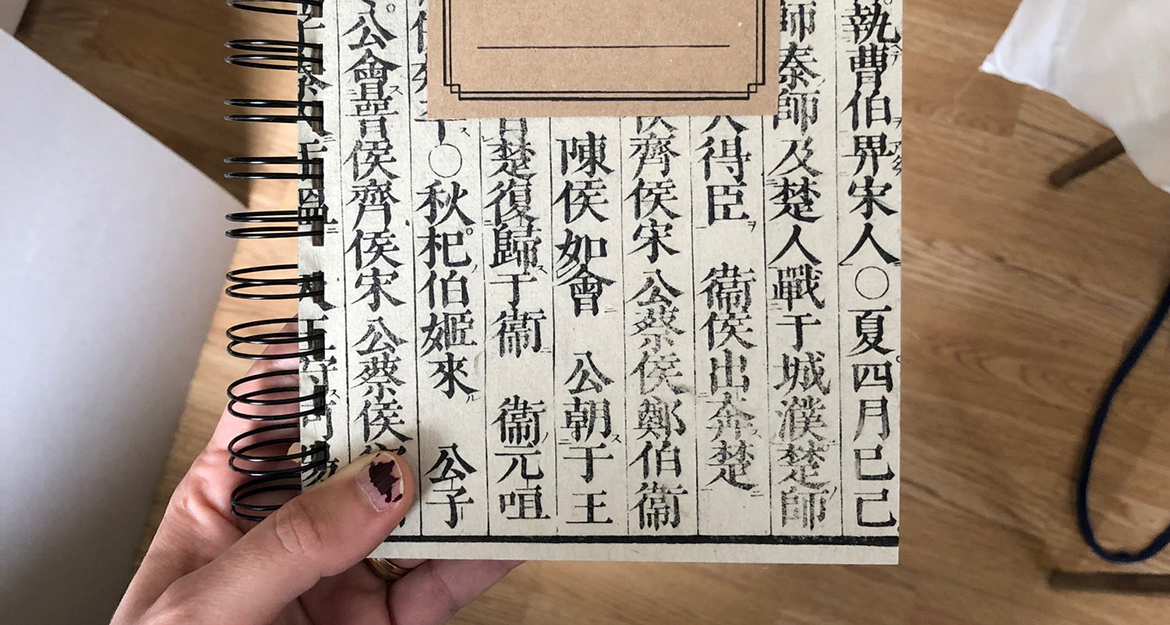 執曹伯畀宋人〇夏四月己巳
師秦師及楚人戰于城濮楚師
人得臣 衞侯出奔楚
侯齊侯宋公蔡侯鄭伯衞
陳侯如會 公朝于王
自楚復歸于衞 衞元咺
〇秋杞伯姬來 公子
公會晉侯齊侯宋公蔡侯